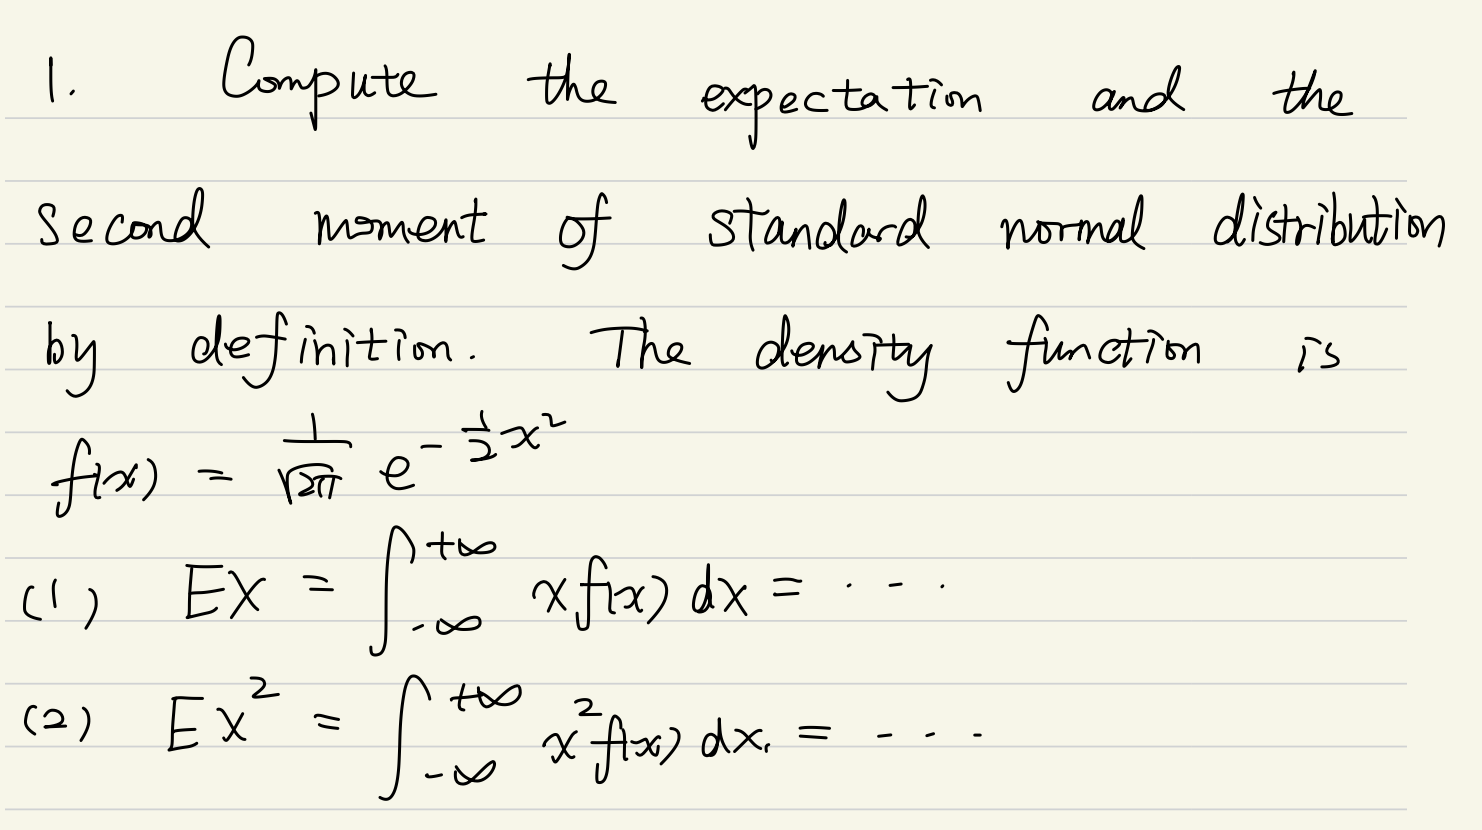 1. Compute the expectation and the
second moment of standard normal distribution
by definition. The density function is
f(x) = 1/√2π e^{-1/2 x^2}
(1) EX = ∫_{-∞}^{+∞} x f(x) dx = ...
(2) EX^2 = ∫_{-∞}^{+∞} x^2 f(x) dx. = ...